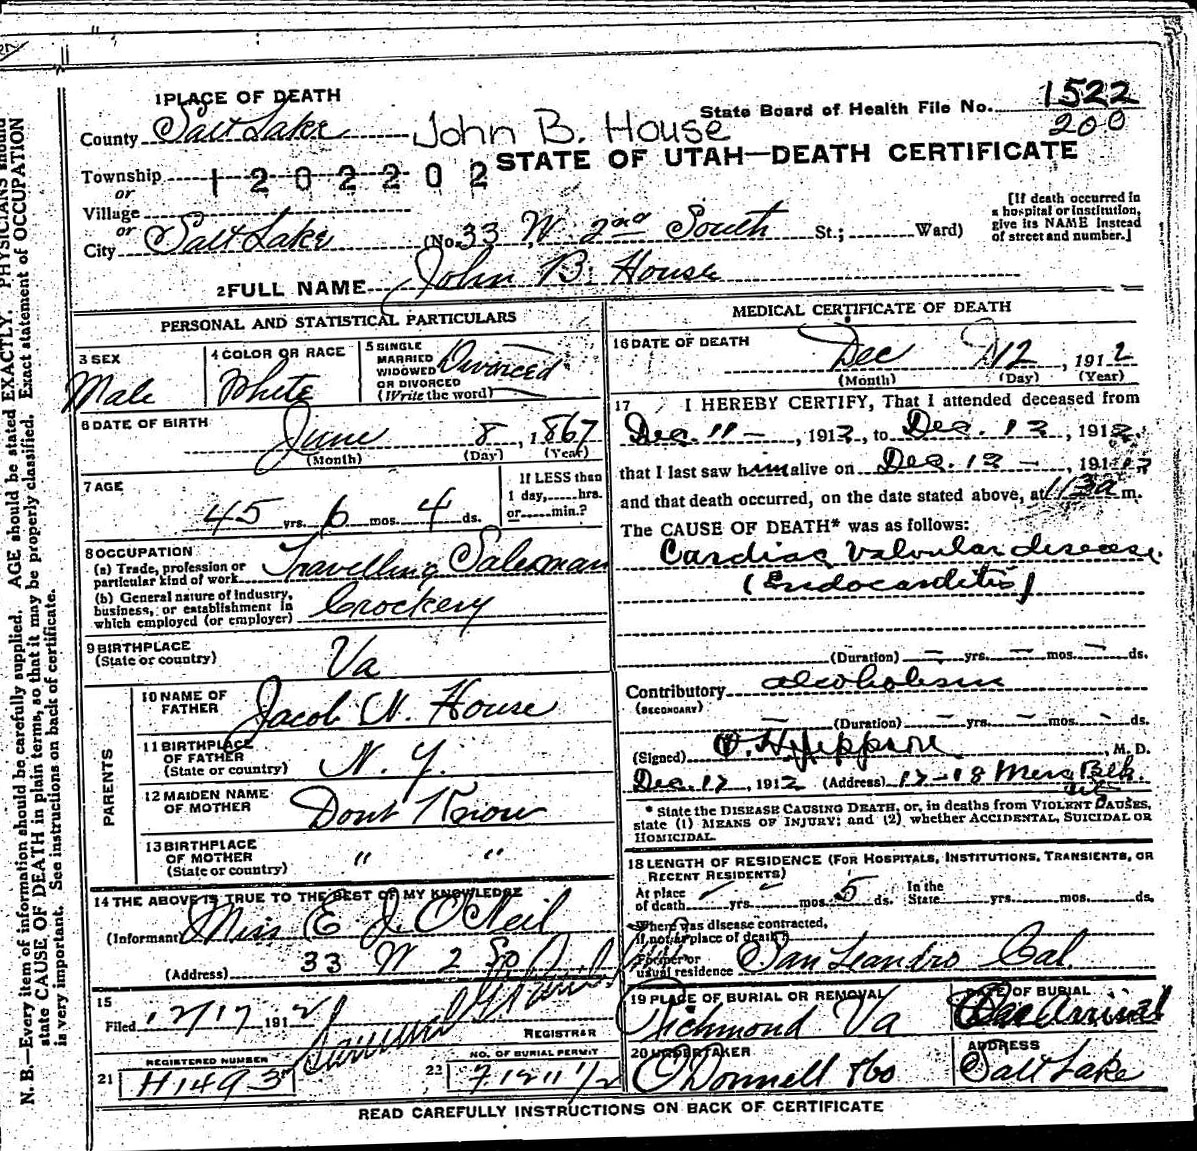 1 PLACE OF DEATH
State Board of Health File No. 1522
200
County Salt Lake
John B. House
STATE OF UTAH—DEATH CERTIFICATE
Township 1 2 0 2 2 0 2
or
Village
or
City Salt Lake (No. 33 W 2nd South St.; Ward)
[If death occurred in
a hospital or institution,
give its NAME instead
of street and number.]
2 FULL NAME John B. House
PERSONAL AND STATISTICAL PARTICULARS
3 SEX
Male
4 COLOR OR RACE
White
5 SINGLE
MARRIED
WIDOWED
OR DIVORCED
(Write the word)
Divorced
6 DATE OF BIRTH
June 8, 1867
(Month) (Day) (Year)
7 AGE
45 yrs. 6 mos. 4 ds.
If LESS than
1 day, hrs.
or min.?
8 OCCUPATION
(a) Trade, profession or
particular kind of work Travelling Salesman
(b) General nature of industry,
business, or establishment in
which employed (or employer) Crockery
9 BIRTHPLACE
(State or country) Va
PARENTS
10 NAME OF
FATHER Jacob N. House
11 BIRTHPLACE
OF FATHER
(State or country) N. Y.
12 MAIDEN NAME
OF MOTHER Dont Know
13 BIRTHPLACE
OF MOTHER
(State or country) " "
14 THE ABOVE IS TRUE TO THE BEST OF MY KNOWLEDGE
(Informant) Miss E J. O'Neil
(Address) 33 W 2 So
15
Filed 12/17 1912
REGISTRAR
REGISTERED NUMBER
21 H1493
NO. OF BURIAL PERMIT
22
MEDICAL CERTIFICATE OF DEATH
16 DATE OF DEATH
Dec 12, 1912
(Month) (Day) (Year)
17 I HEREBY CERTIFY, That I attended deceased from
Dec. 11 —, 1912, to Dec. 12, 1912
that I last saw him alive on Dec. 12 —, 1912
and that death occurred, on the date stated above, at m.
The CAUSE OF DEATH* was as follows:
Cardiac Valvular disease.
(Endocarditis)
(Duration) — yrs. — mos. — ds.
Contributory alcoholism
(SECONDARY)
— (Duration) — yrs. — mos. — ds.
(Signed) M. D.
Dec. 17, 1912 (Address) 17-18 Merc Blk.
* State the DISEASE CAUSING DEATH, or, in deaths from VIOLENT CAUSES,
state (1) MEANS OF INJURY; and (2) whether ACCIDENTAL, SUICIDAL OR
HOMICIDAL.
18 LENGTH OF RESIDENCE (FOR HOSPITALS, INSTITUTIONS, TRANSIENTS, OR
RECENT RESIDENTS)
At place
of death yrs. mos. 5 ds.
In the
State yrs. mos. ds.
Where was disease contracted,
if not at place of death?
Former or
usual residence San Leandro Cal.
19 PLACE OF BURIAL OR REMOVAL
Richmond Va
DATE OF BURIAL
On arrival
20 UNDERTAKER
O'Donnell & Co
ADDRESS
Salt Lake
READ CAREFULLY INSTRUCTIONS ON BACK OF CERTIFICATE
N. B.—Every item of information should be carefully supplied. AGE should be stated EXACTLY. PHYSICIANS should
state CAUSE OF DEATH in plain terms, so that it may be properly classified. Exact statement of OCCUPATION
is very important. See instructions on back of certificate.